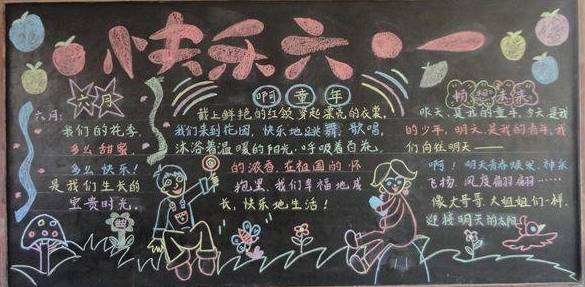 快乐六·一
六月
六月:
我们的花季,
多么甜蜜。
多么快乐!
是我们生长的
宝贵时光。
啊童年
戴上鲜艳的红领,穿起漂亮的衣裳,
我们来到花园,快乐地跳舞、歌唱,
沐浴着温暖的阳光,呼吸着百花
的浓香,在祖国的怀
抱里,我们幸福地成
长,快乐地生活!
昨天,是我的童年,今天是我
的少年,明天是我的青年,我
们向往明天——
啊!明天青春焕发,神采
飞扬,风度翩翩……
像大哥哥大姐姐们一样,
迎接明天的太阳